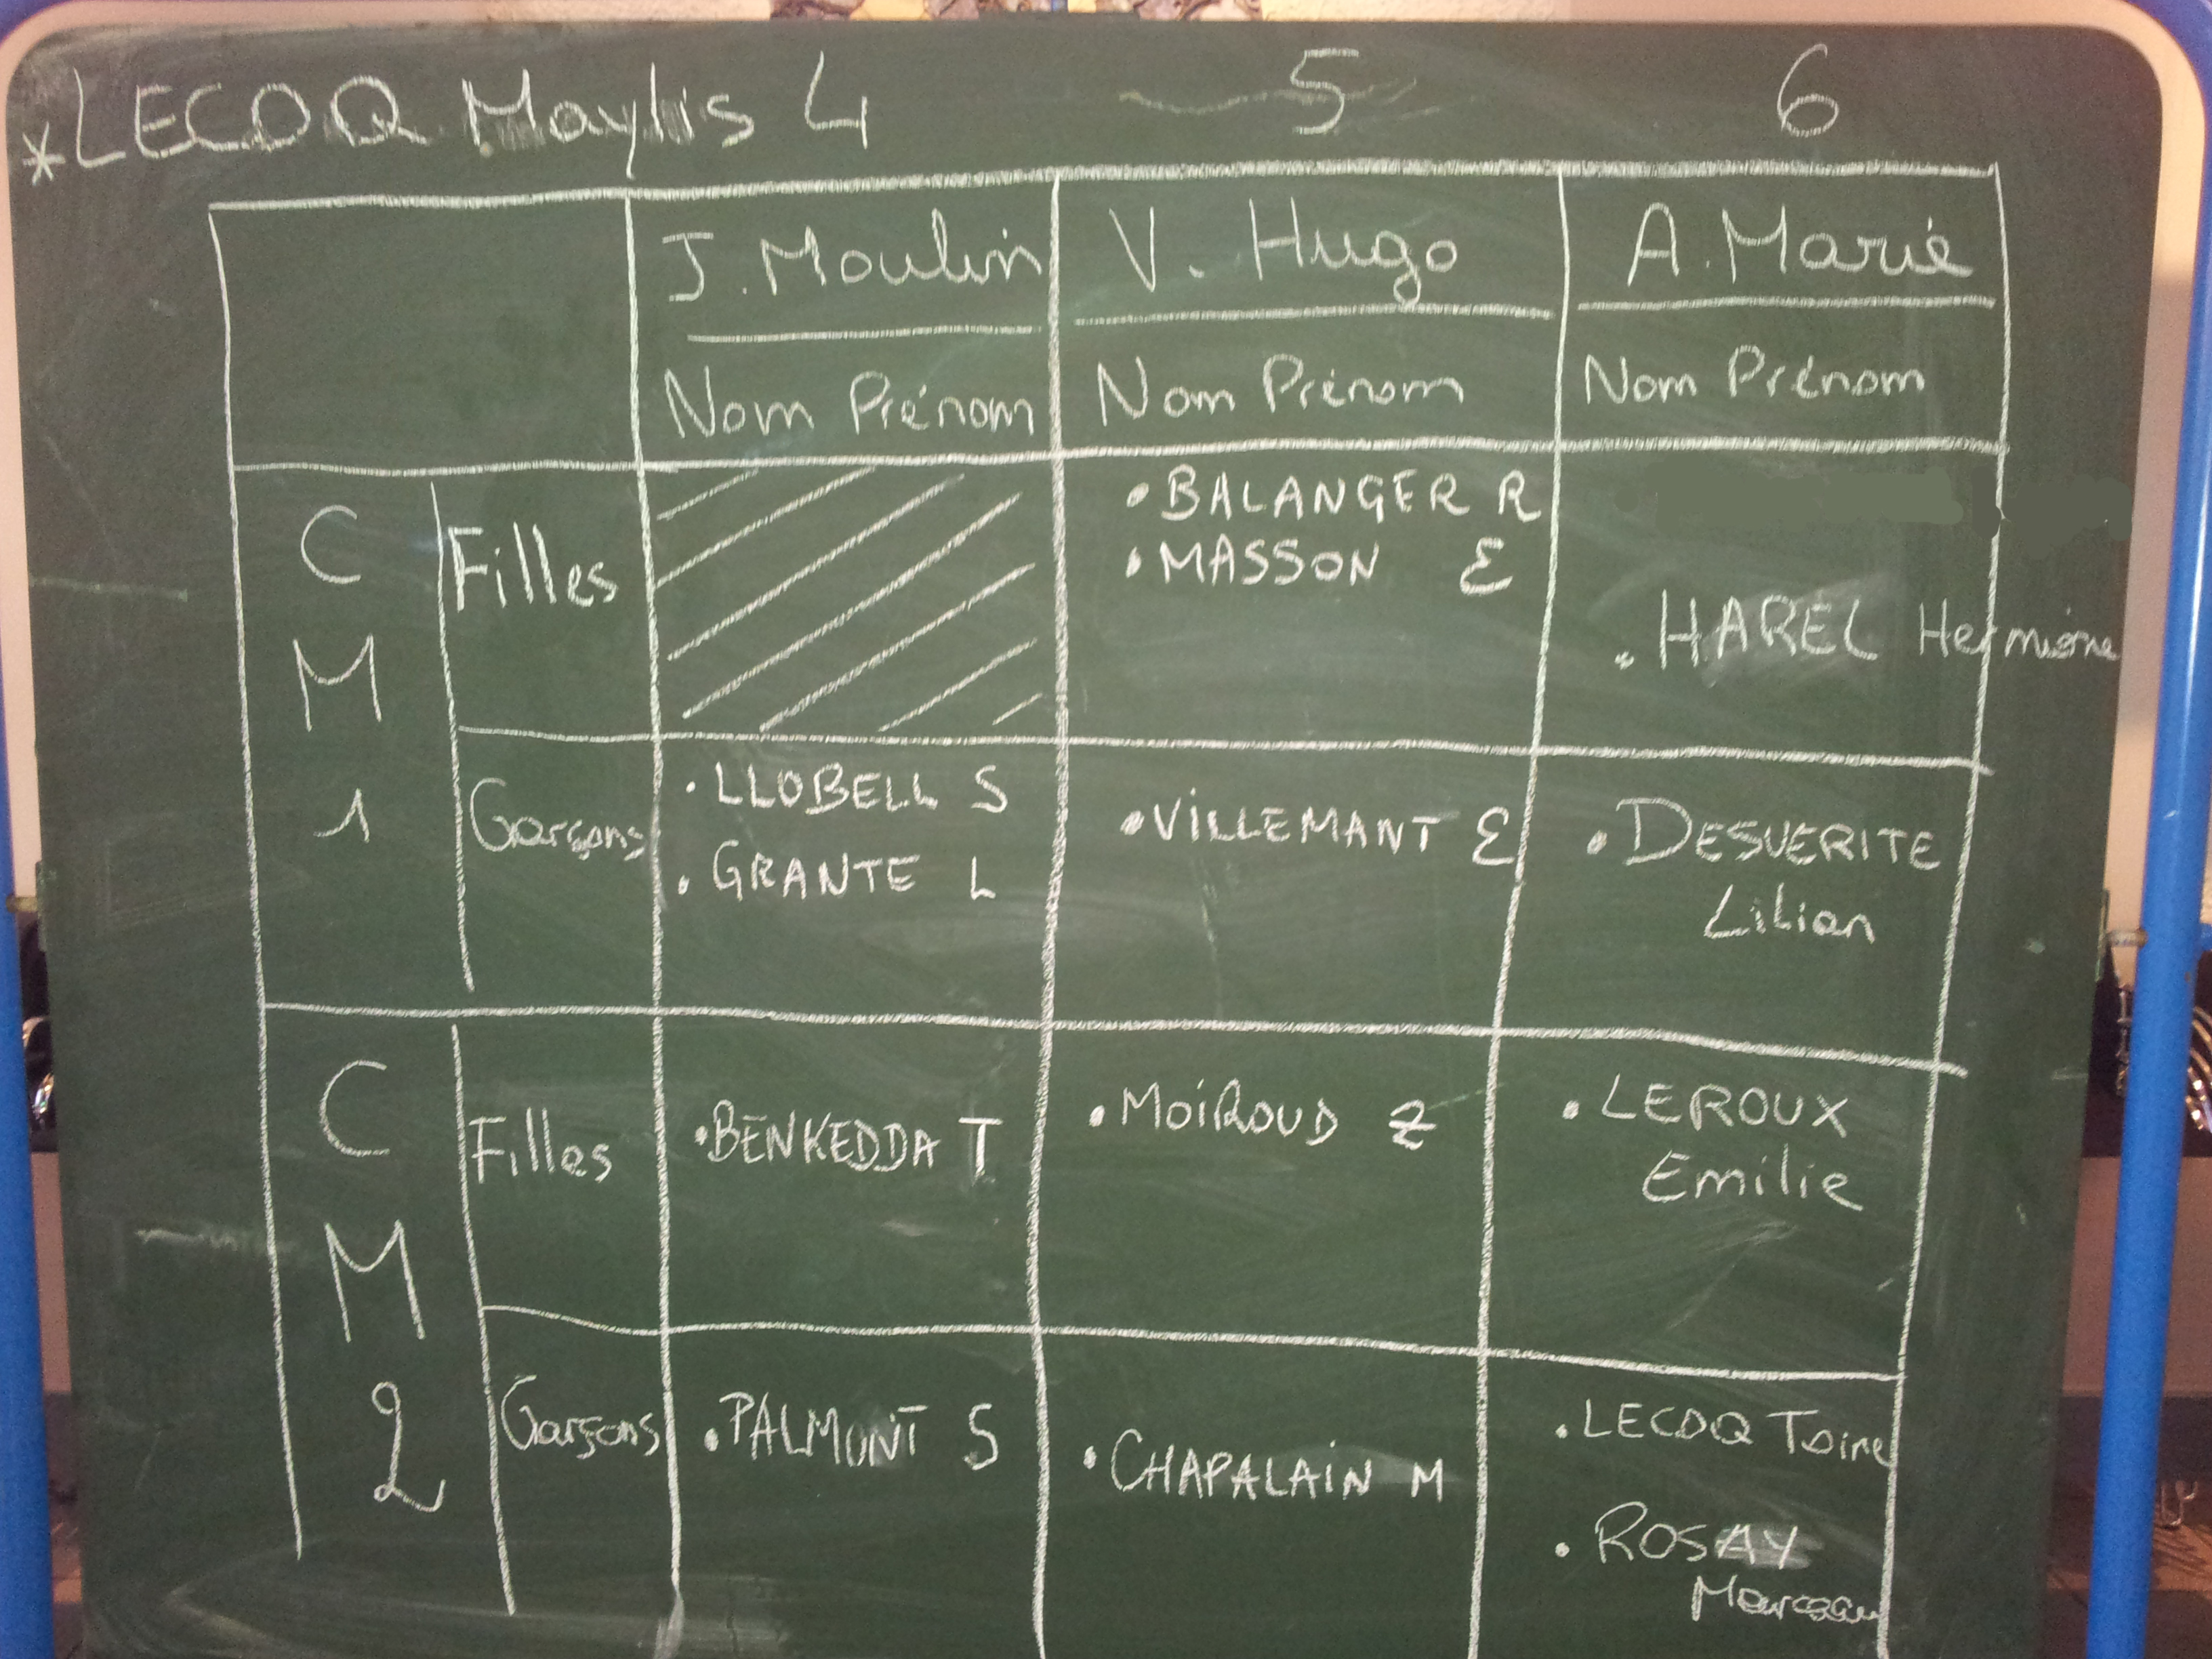 *LECOQ Maylis 4 5 6
J. Moulin V. Hugo A. Marie
Nom Prénom Nom Prénom Nom Prénom
CM1
Filles
• BALANGER R
• MASSON E
• HAREL Hermione
Garçons
• LLOBELL S
• GRANTE L
• VILLEMANT E
• DESVERITE
Lilian
CM2
Filles
• BENKEDDA T
• MOiROUD Z
• LEROUX
Emilie
Garçons
• PALMONT S
• CHAPALAiN M
• LECOQ Toine
• ROSAY
Marceau